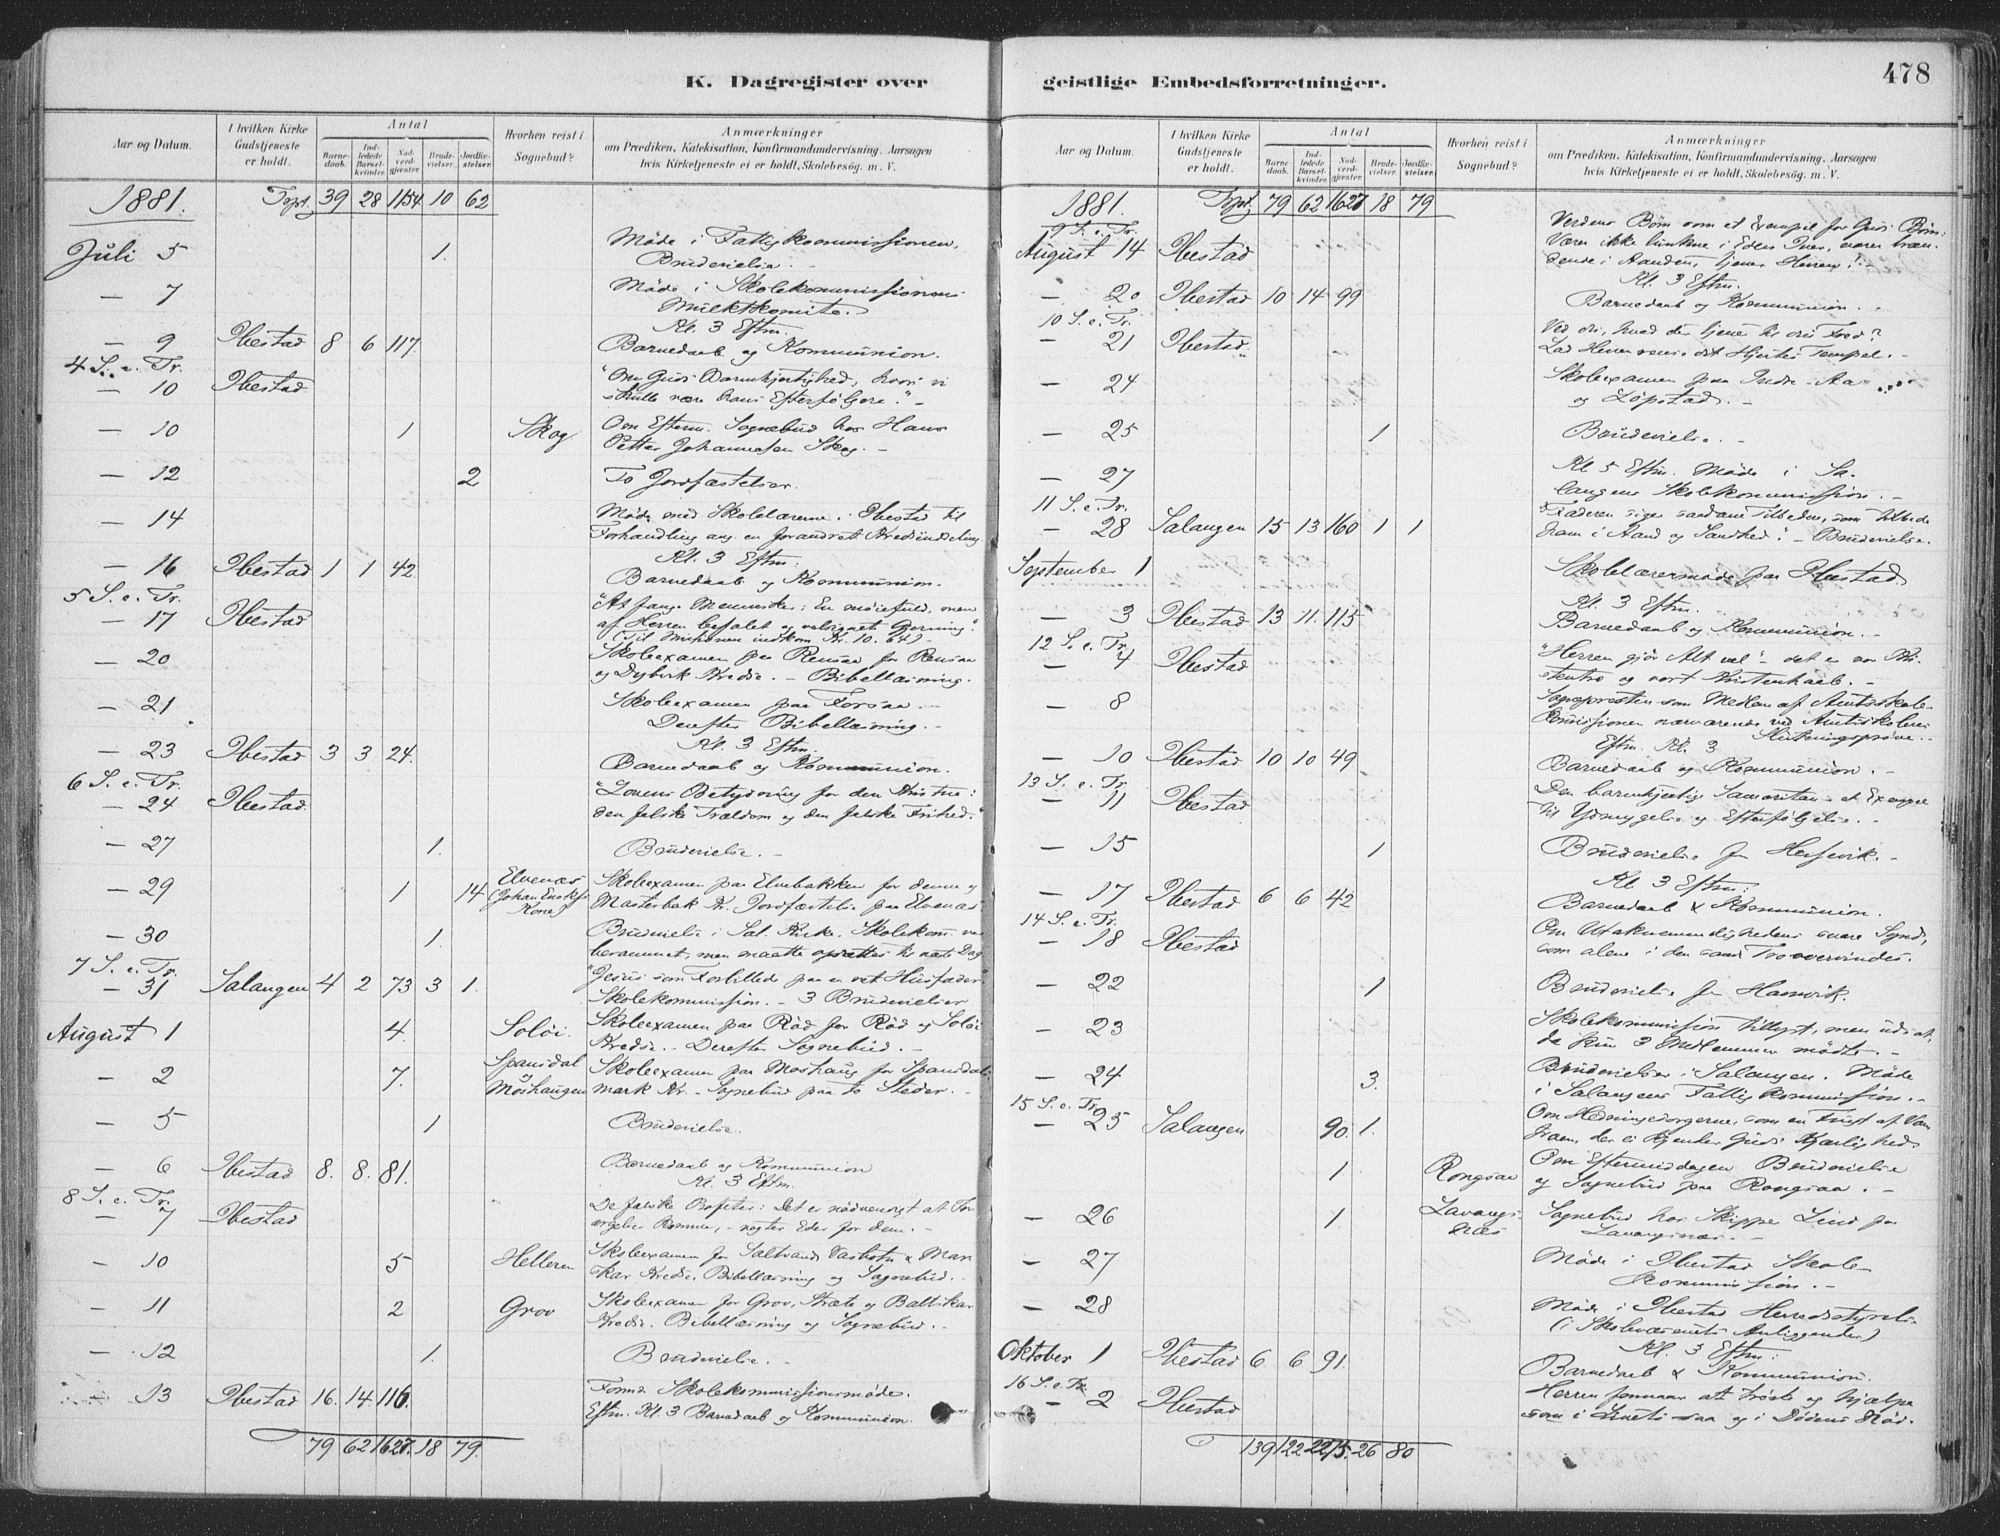 K. Dagregister over
geistlige Embedsforretninger.
478
Aar og Datum.
I hvilken Kirke Gudstjeneste er holdt.
Antal
Barnedaab.
Indledede Barselkvinder.
Nadverdgjester.
Brudevielser.
Jordfæstelser.
Hvorhen reist i Sognebud?
Anmærkninger
om Prædiken, Katekisation, Konfirmandundervisning, Aarsagen
hvis Kirketjeneste ei er holdt, Skolebesøg. m. V.
1881. Tspt. 39 28 1154 10 62
Juli 5 1. Møde i Fattigkommissionen.
Brudevielse.
— 7 Møde i Skolekommissionens
Mulktkomite.
Kl. 3 Eftm.
— 9 Ibestad 8 6 117 Barnedaab og Kommunion.
4 S. e. Tr.
— 10 Ibestad "Om Guds Barmhjertighed, hvori vi
skulle være hans Efterfølgere." -
— 10 1 Skog Om Efterm. Sognebud hos Hans
Petter Johannesen Skog. -
— 12 2 To Jordfæstelser.
— 14 Møde med Skolelærerne i Ibestad til
Forhandling ang. en forandret Kredsinddeling
Kl. 3 Eftm:
— 16 Ibestad 1 1 42 Barnedaab og Kommunion.
5 S. e. Tr.
— 17 Ibestad "At fange Mennesker: En møiefuld, men
af Herren befalet og velsignet Gjerning."
(Til Missionen indkom Kr. 10. 64) -
— 20 Skoleexamen paa Rensaa for Rensaa
og Dyrvik Kreds. - Bibellæsning.
— 21 Skoleexamen paa Forsaa. -
Derefter Bibellæsning. -
Kl. 3 Eftm.
— 23 Ibestad 3 3 24. Barnedaab og Kommunion.
6 S. e. Tr.
— 24 Ibestad. "Lovens Betydning for den Kristne:
den falske Trældom og den falske Frihed."
— 27 1. Brudevielse. -
— 29 1 14 Elvenæs
(Johan Kone) Skoleexamen paa Elvebakken for denne og
Masterbak Kr. Jordfæstelse paa Elvenæs
— 30 1. Brudevielse i Sal. Kirke. Skolekom. var
berammet, men maatte opsættes til næste Dag
7 S. e. Tr.
— 31 Salangen 4 2 73 3 1. "Jesus som Forbillede paa en ret Husfader"
Skolekommission. - 3 Brudevielser
August 1 4. Soløi. Skoleexamen paa Rød for Rød og Soløi
Kredse. - Derefter Sognebud. -
— 2 7. Spansdal
og
Moshaugen Skoleexamen paa Moshaug for Spansdal
mark Kr. - Sognebud paa to Steder. -
— 5 1 Brudevielse.
— 6 Ibestad 8. 8. 81. Barnedaab og Kommunion
Kl. 3 Eftm.
8 S. e. Tr.
— 7 Ibestad De falske Profeter: Det er nødvendigt at For
argelser komme, - vogter Eder for dem. -
— 10 5 Helleren Skoleexamen for Saltvand Vasbotn & Mar
kar Kredse. Bibellæsning og Sognebud. -
— 11 2 Grov Skoleexamen for Grov, Stræte og Baltskar
Kredse. Bibellæsning og Sognebud. -
— 12 1. Brudevielse. -
— 13 Ibestad 16. 14. 116. Form. Skolekommissionsmøde.
Eftm. Kl. 3 Barnedaab og Kommunion.
79 62 1627. 18 79.
Aar og Datum.
I hvilken Kirke Gudstjeneste er holdt.
Antal
Barnedaab.
Indledede Barselkvinder.
Nadverdgjester.
Brudevielser.
Jordfæstelser.
Hvorhen reist i Sognebud?
Anmærkninger
om Prædiken, Katekisation, Konfirmandundervisning, Aarsagen
hvis Kirketjeneste ei er holdt, Skolebesøg. m. V.
1881. Tspt. 79 62 1627 18 79
9 S. e. Tr.
August 14 Ibestad Verdens Børn som et Exempel for Guds Børn:
Værer ikke lunkne i Eders Iver, værer bræn
dende i Aanden, tjener Herren! -
Kl. 3 Eftm.
— 20 Ibestad 10 14 99 Barnedaab og Kommunion. -
10 S. e. Tr.
— 21 Ibestad. Ved du, hvad der tjener til din Fred?
Lad Herren rense dit Hjertes Tempel. -
— 24 Skoleexamen paa Indre-Aa
og Løpstad. -
— 25 1 Brudevielse. -
— 27 Kl 5 Eftm. Møde i Sa-
langens Skolekommission. -
11 S. e. Tr.
— 28 Salangen 15 13 160 1 1 "Faderen søger saadanne Tilbedere, som tilbede
ham i Aand og Sandhed." - Brudevielse.
September 1 Skolelærermøde paa Ibestad
Kl. 3 Eftm.
— 3 Ibestad 13 11. 115 Barnedaab og Kommunion. -
12 S. e. Tr.
— 4 Ibestad "Herren gjør Alt vel" - det er vor Kri-
stentro og vort Kristenhaab. -
— 8 Sogneprosten som Medlem af Amtsskole-
kommissionen nærværende ved Amtsskolens
Slutningsprøve. -
Eftm. Kl. 3
— 10 Ibestad 10 10 49 Barnedaab og Kommunion. -
13 S. e. Tr.
— 11 Ibestad Den barmhjertige Samaritan - et Exempel
til Ydmygelse og Efterfølgelse. -
— 15 1 Brudevielse fra -
Kl 3 Eftm:
— 17 Ibestad 6 6 42 Barnedaab & Kommunion.
14 S. e. Tr.
— 18 Ibestad Om Utaknemmelighedens svare Synd,
som alene i den sande Tro overvindes.
— 22 1 Brudevielse fra Hamvik.
— 23 Skolekommission tillyst, men udsat,
da kun 3 Medlemmer mødte. -
— 24 3. Brudevielser i Salangen. Møde
i Salangens Fattigkommission. -
15 S. e. Tr.
— 25 Salangen 90. 1. Om Hedningesorgerne som en Frugt af Van
troen, der ei kjender Guds Kjærlighed.
1 Rongsaa Om Eftermiddagen Brudevielse
og Sognebud paa Rongsaa. -
— 26 1. Lavangs-
næs Sognebud hos Skipper Lind paa
Lavangsnæs. -
— 27 Møde i Ibestad Skole-
kommission. -
— 28 Møde i Ibestad Herredsstyrelse
(i Skolevæsenets Anliggender)
Kl. 3 Eftm:
Oktober 1 Ibestad 6 6 91. Barnedaab & Kommunion.
16 S. e. Tr.
— 2 Ibestad Herren formaar at trøste og hjælpe
som i Livets saa og i Dødens Nød.
139 122 2275. 26 80